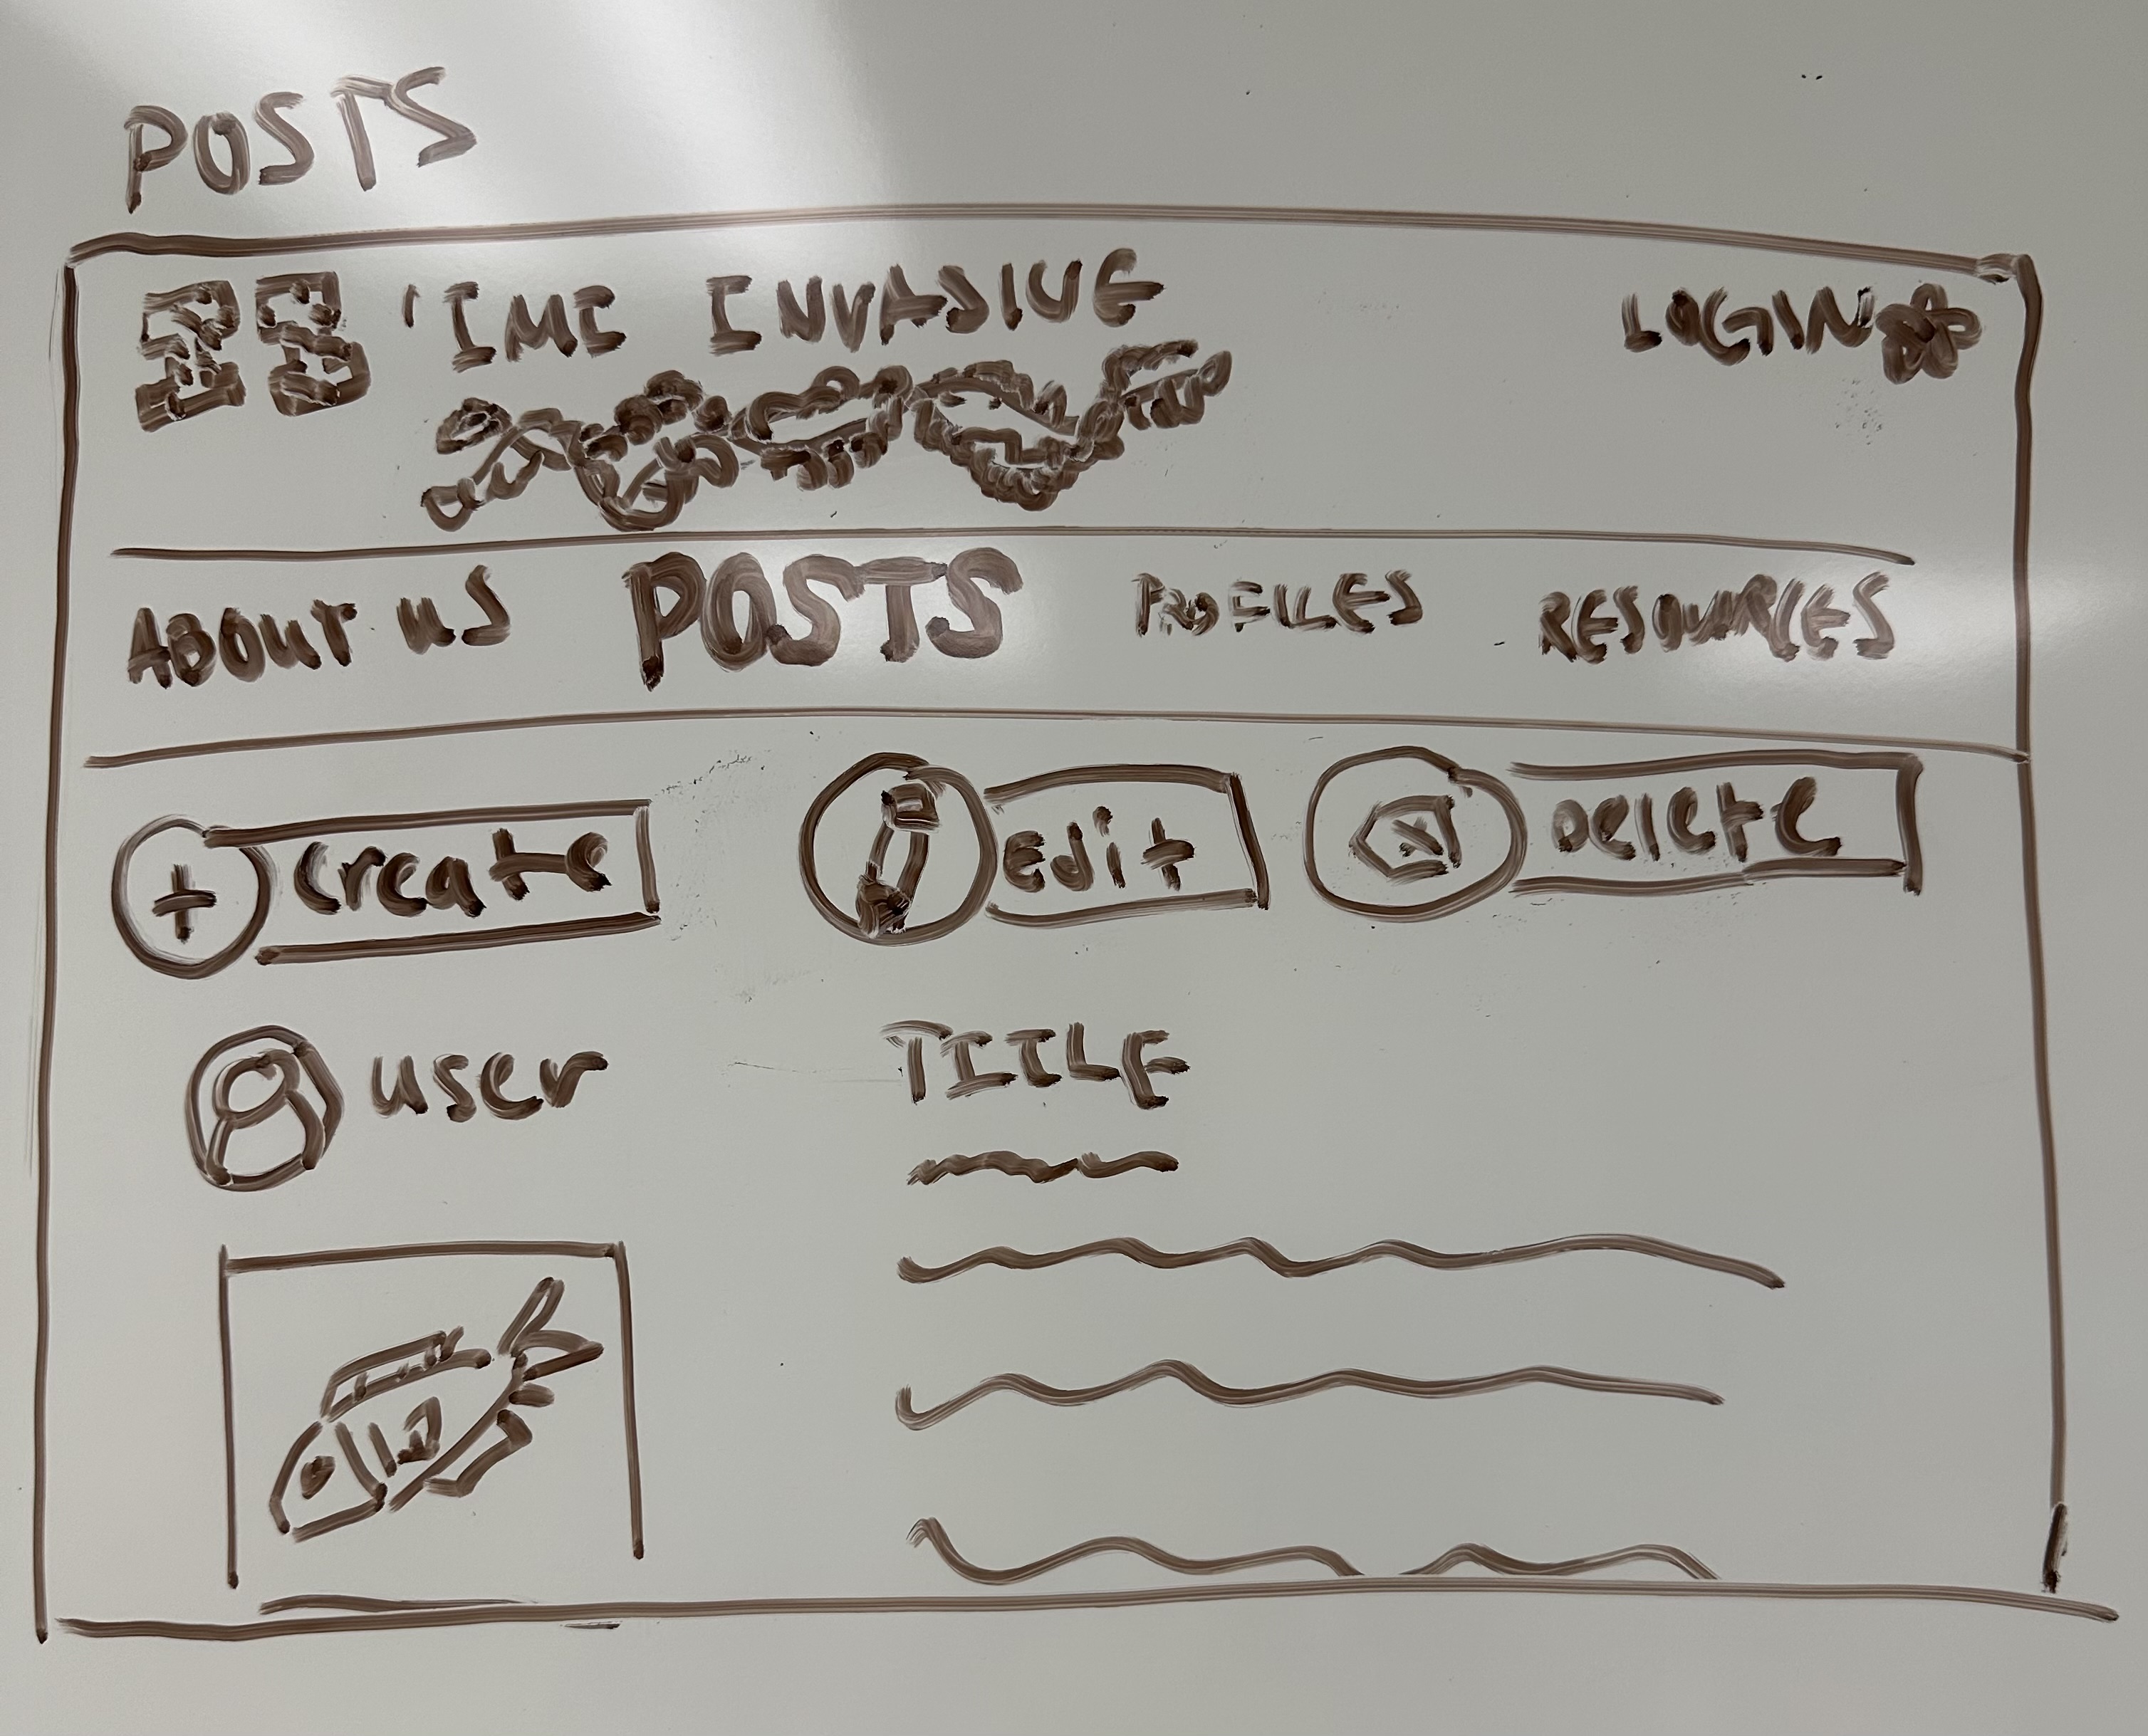 POSTS
'IMI INVASIVE
LOGIN
ABOUT US POSTS PROFILES RESOURCES
+ Create Edit Delete
user
TITLE